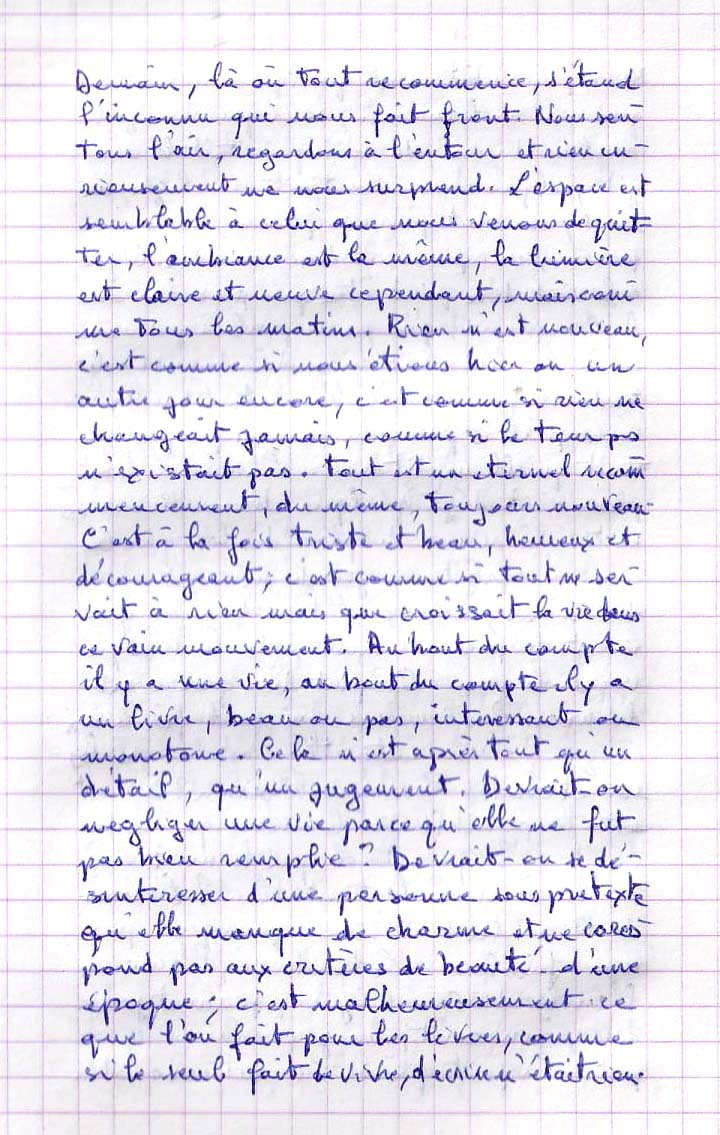 Demain, là où tout recommence, s'étend
l'inconnu qui nous fait front. Nous sen-
tons l'air, regardons à l'entour et rien cu-
rieusement ne nous surprend. L'espace est
semblable à celui que nous venons de quit-
ter, l'ambiance est la même, la lumière
est claire et neuve cependant, mais com
me tous les matins. Rien n'est nouveau,
c'est comme si nous étions hier ou un
autre jour encore, c'est comme si rien ne
changeait jamais, comme si le temps
n'existait pas. tout est un éternel recom
mencement, du même, toujours nouveau.
C'est à la fois triste et beau, heureux et
décourageant; c'est comme si tout ne ser
vait à rien mais que croissait la vie dans
ce vain mouvement. Au bout du compte
il y a une vie, au bout du compte il y a
un livre, beau ou pas, interessant ou
monotone. Cela n'est après tout qu'un
détail, qu'un jugement. Devrait-on
negliger une vie parce qu'elle ne fut
pas bien remplie? Devrait-on se dé-
sinteresser d'une personne sous pretexte
qu'elle manque de charme et ne cores
pond pas aux critères de beauté d'une
époque; c'est malheureusement ce
que l'on fait pour les livres, comme
si le seul fait de vivre, d'écrire n'était rien.